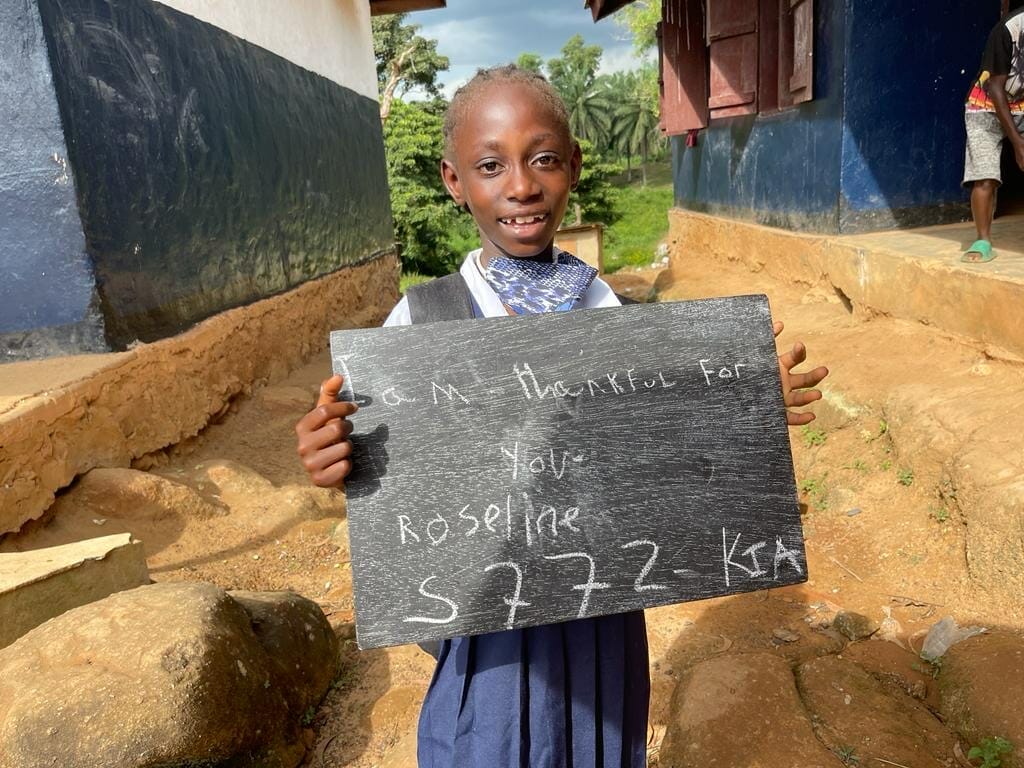 I am - thankful For
You-
Roseline
S772- KJA